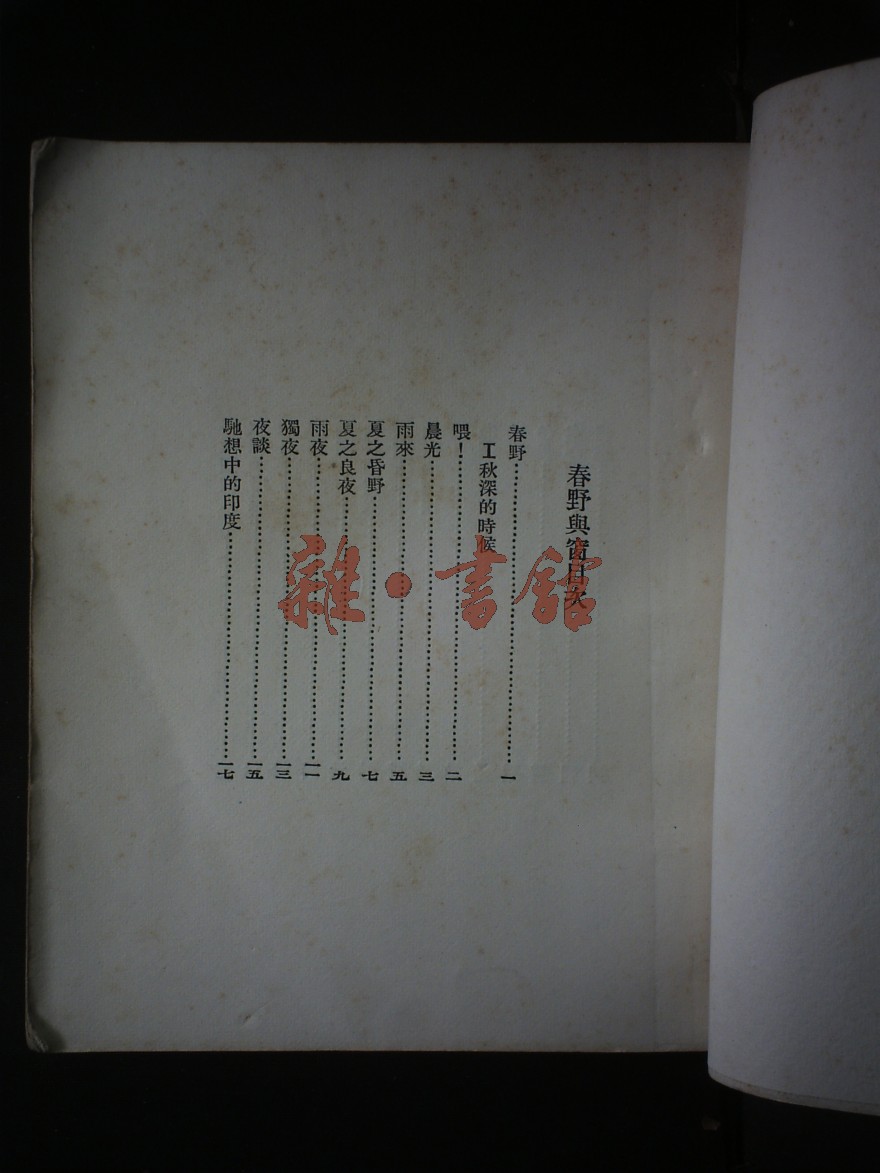 春野與窗目次
春野……一
I 秋深的時候
喂！……二
晨光……三
雨來……五
夏之昏野……七
夏之良夜……九
雨夜……一一
獨夜……一三
夜談……一五
馳想中的印度……一七
雜·書館